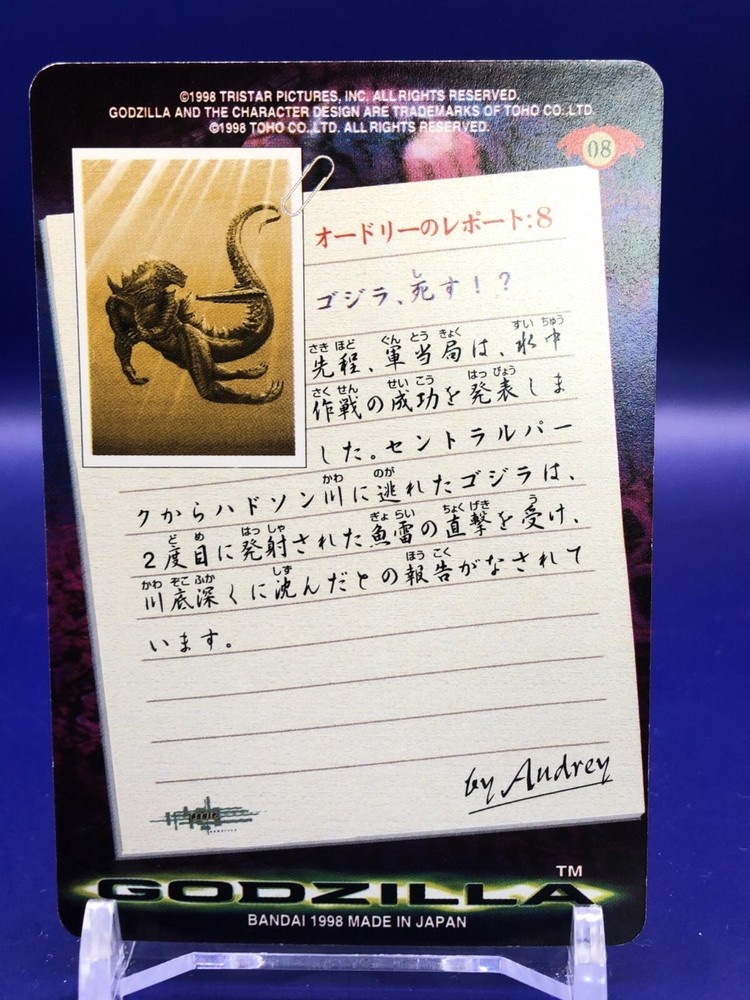 ©1998 TRISTAR PICTURES, INC. ALL RIGHTS RESERVED.
GODZILLA AND THE CHARACTER DESIGN ARE TRADEMARKS OF TOHO CO.,LTD.
©1998 TOHO CO.,LTD. ALL RIGHTS RESERVED.
08
オードリーのレポート:8
し
ゴジラ、死す！？
さき ほど ぐん とう きょく すい ちゅう
先程、軍当局は、水中
さく せん せい こう はっ ぴょう
作戦の成功を発表しま
した。セントラルパー
かわ のが
クからハドソン川に逃れたゴジラは、
ど め はっ しゃ ぎょ らい ちょく げき う
2度目に発射された魚雷の直撃を受け、
かわ ぞこ ふか しず ほう こく
川底深くに沈んだとの報告がなされて
います。
by Audrey
GODZILLA
TM
BANDAI 1998 MADE IN JAPAN